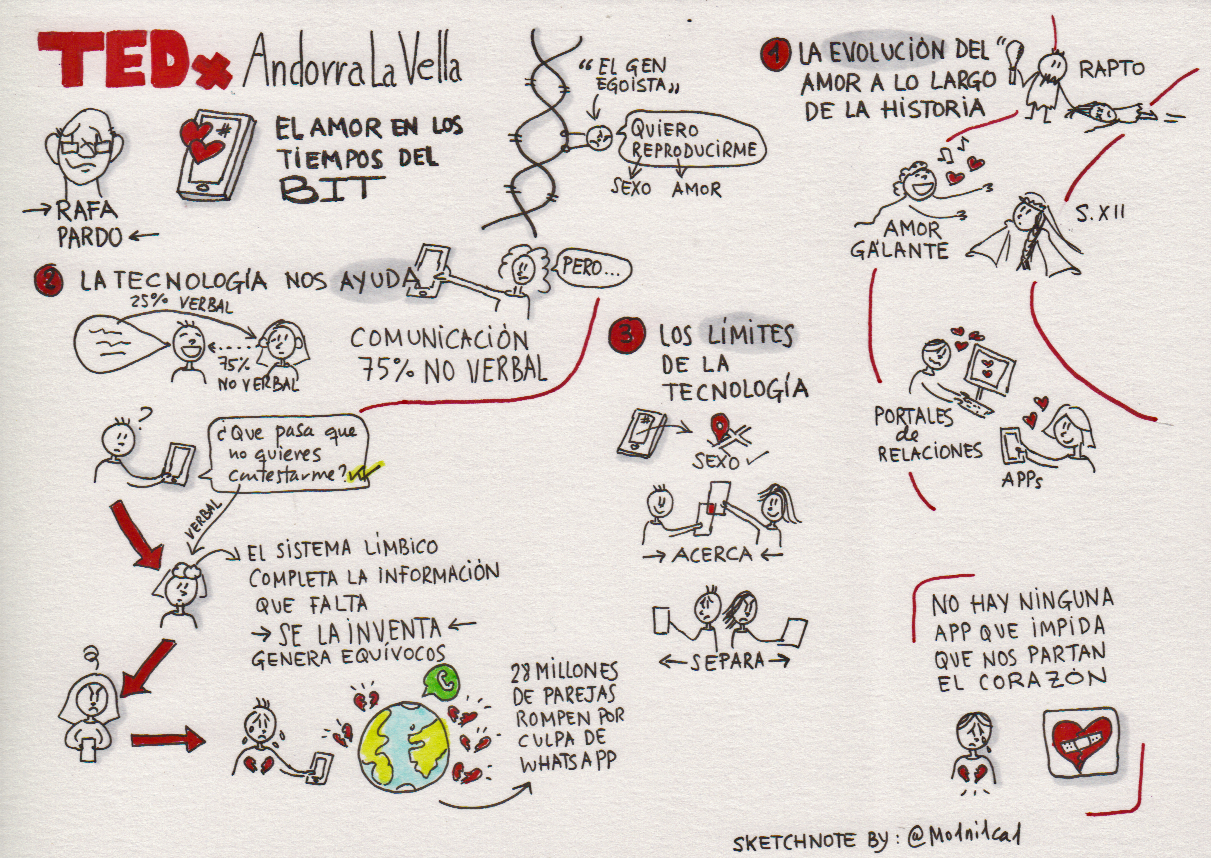 TEDx Andorra La Vella
EL AMOR EN LOS
TIEMPOS DEL
BIT
#
→ RAFA
PARDO ←
"EL GEN
EGOISTA"
QUIERO
REPRODUCIRME
SEXO AMOR
1 LA EVOLUCIÓN DEL
AMOR A LO LARGO
DE LA HISTORIA
RAPTO
AMOR
GALANTE
S.XII
PORTALES
de
RELACIONES
APPs
2 LA TECNOLOGÍA NOS AYUDA
PERO...
25% VERBAL
75%
NO VERBAL
COMUNICACIÓN
75% NO VERBAL
?
¿Que pasa que
no quieres
contestarme?
VERBAL
EL SISTEMA LÍMBICO
COMPLETA LA INFORMACIÓN
QUE FALTA
→ SE LA INVENTA ←
GENERA EQUÍVOCOS
28 MILLONES
DE PAREJAS
ROMPEN POR
CULPA DE
WHATSAPP
3 LOS LÍMITES
DE LA
TECNOLOGÍA
#
SEXO ✓
→ ACERCA ←
← SEPARA →
NO HAY NINGUNA
APP QUE IMPIDA
QUE NOS PARTAN
EL CORAZÓN
SKETCHNOTE BY: @Mo1ni1ca1